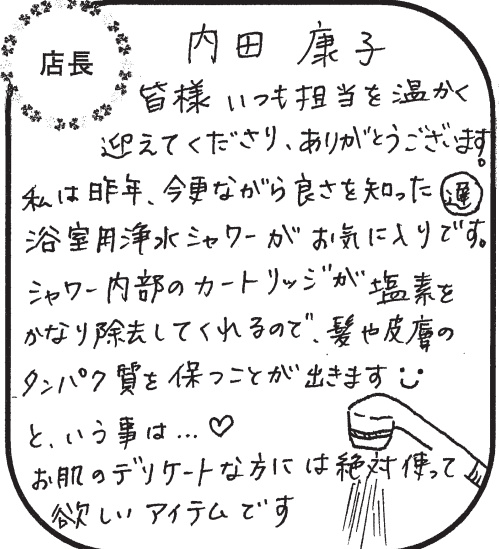 店長
内田 康子
皆様 いつも担当を温かく
迎えてくださり、ありがとうございます。
私は昨年、今更ながら良さを知った 遅
浴室用浄水シャワーがお気に入りです。
シャワー内部のカートリッジが塩素を
かなり除去してくれるので、髪や皮膚の
タンパク質を保つことが出きます
と、いう事は…♡
お肌のデリケートな方には絶対使って
欲しいアイテムです